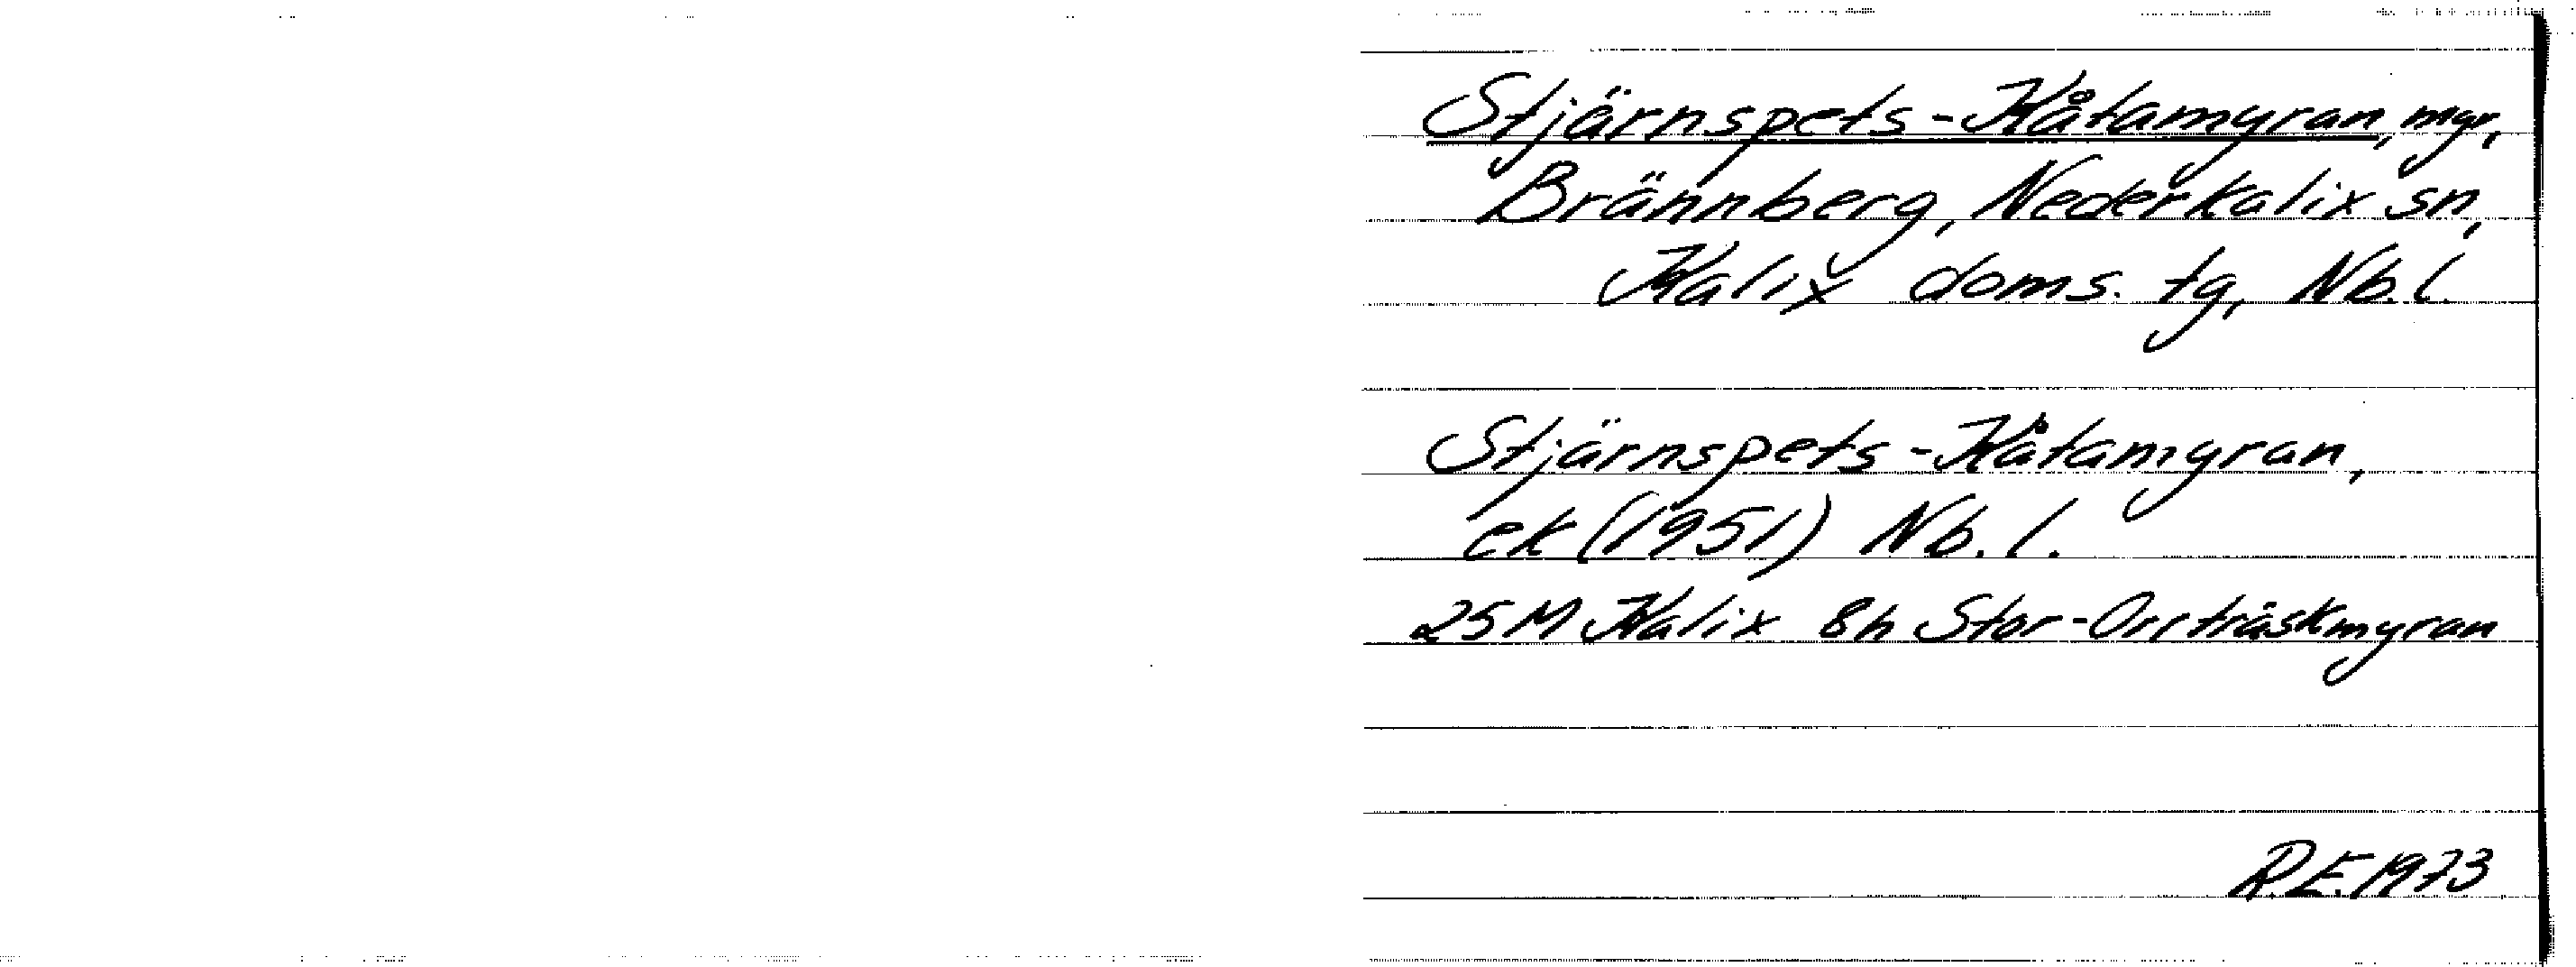 Stjärnspets-Kåtamyran, myr,
Brännberg, Nederkalix sn,
Kalix doms. tg, Nb. l.
Stjärnspets-Kåtamyran,
ek (1951) Nb. l.
25M Kalix 8h Stor-Orrträskmyran
R.E. 1973